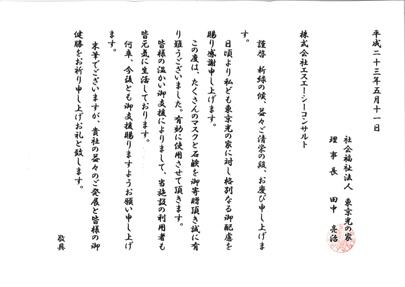 平成二十三年五月十一日
株式会社エスエーシーコンサルト
社会福祉法人 東京光の家
理事長 田中亮治
謹啓 新緑の候、益々ご清栄の段、お慶び申し上げま
す。
日頃より私ども東京光の家に対し格別なる御配慮を
賜り感謝申し上げます。
この度は、たくさんのマスクと石鹸を御寄贈頂き誠に有
り難うございました。有効に使用させて頂きます。
皆様の温かい御支援によりまして、当施設の利用者も
皆元気に生活しております。
何卒、今後とも御支援賜りますようお願い申し上げ
ます。
末筆でございますが、貴社の益々のご発展と皆様の御
健勝をお祈り申し上げお礼と致します。
敬具